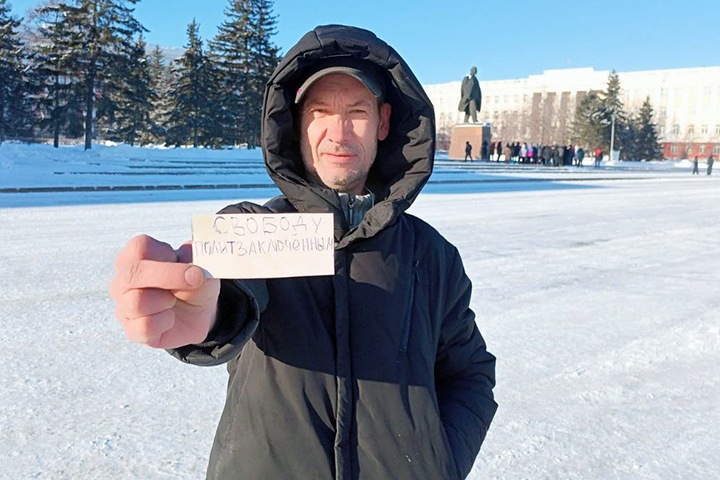 СВОБОДУ
ПОЛИТЗАКЛЮЧЁННЫМ